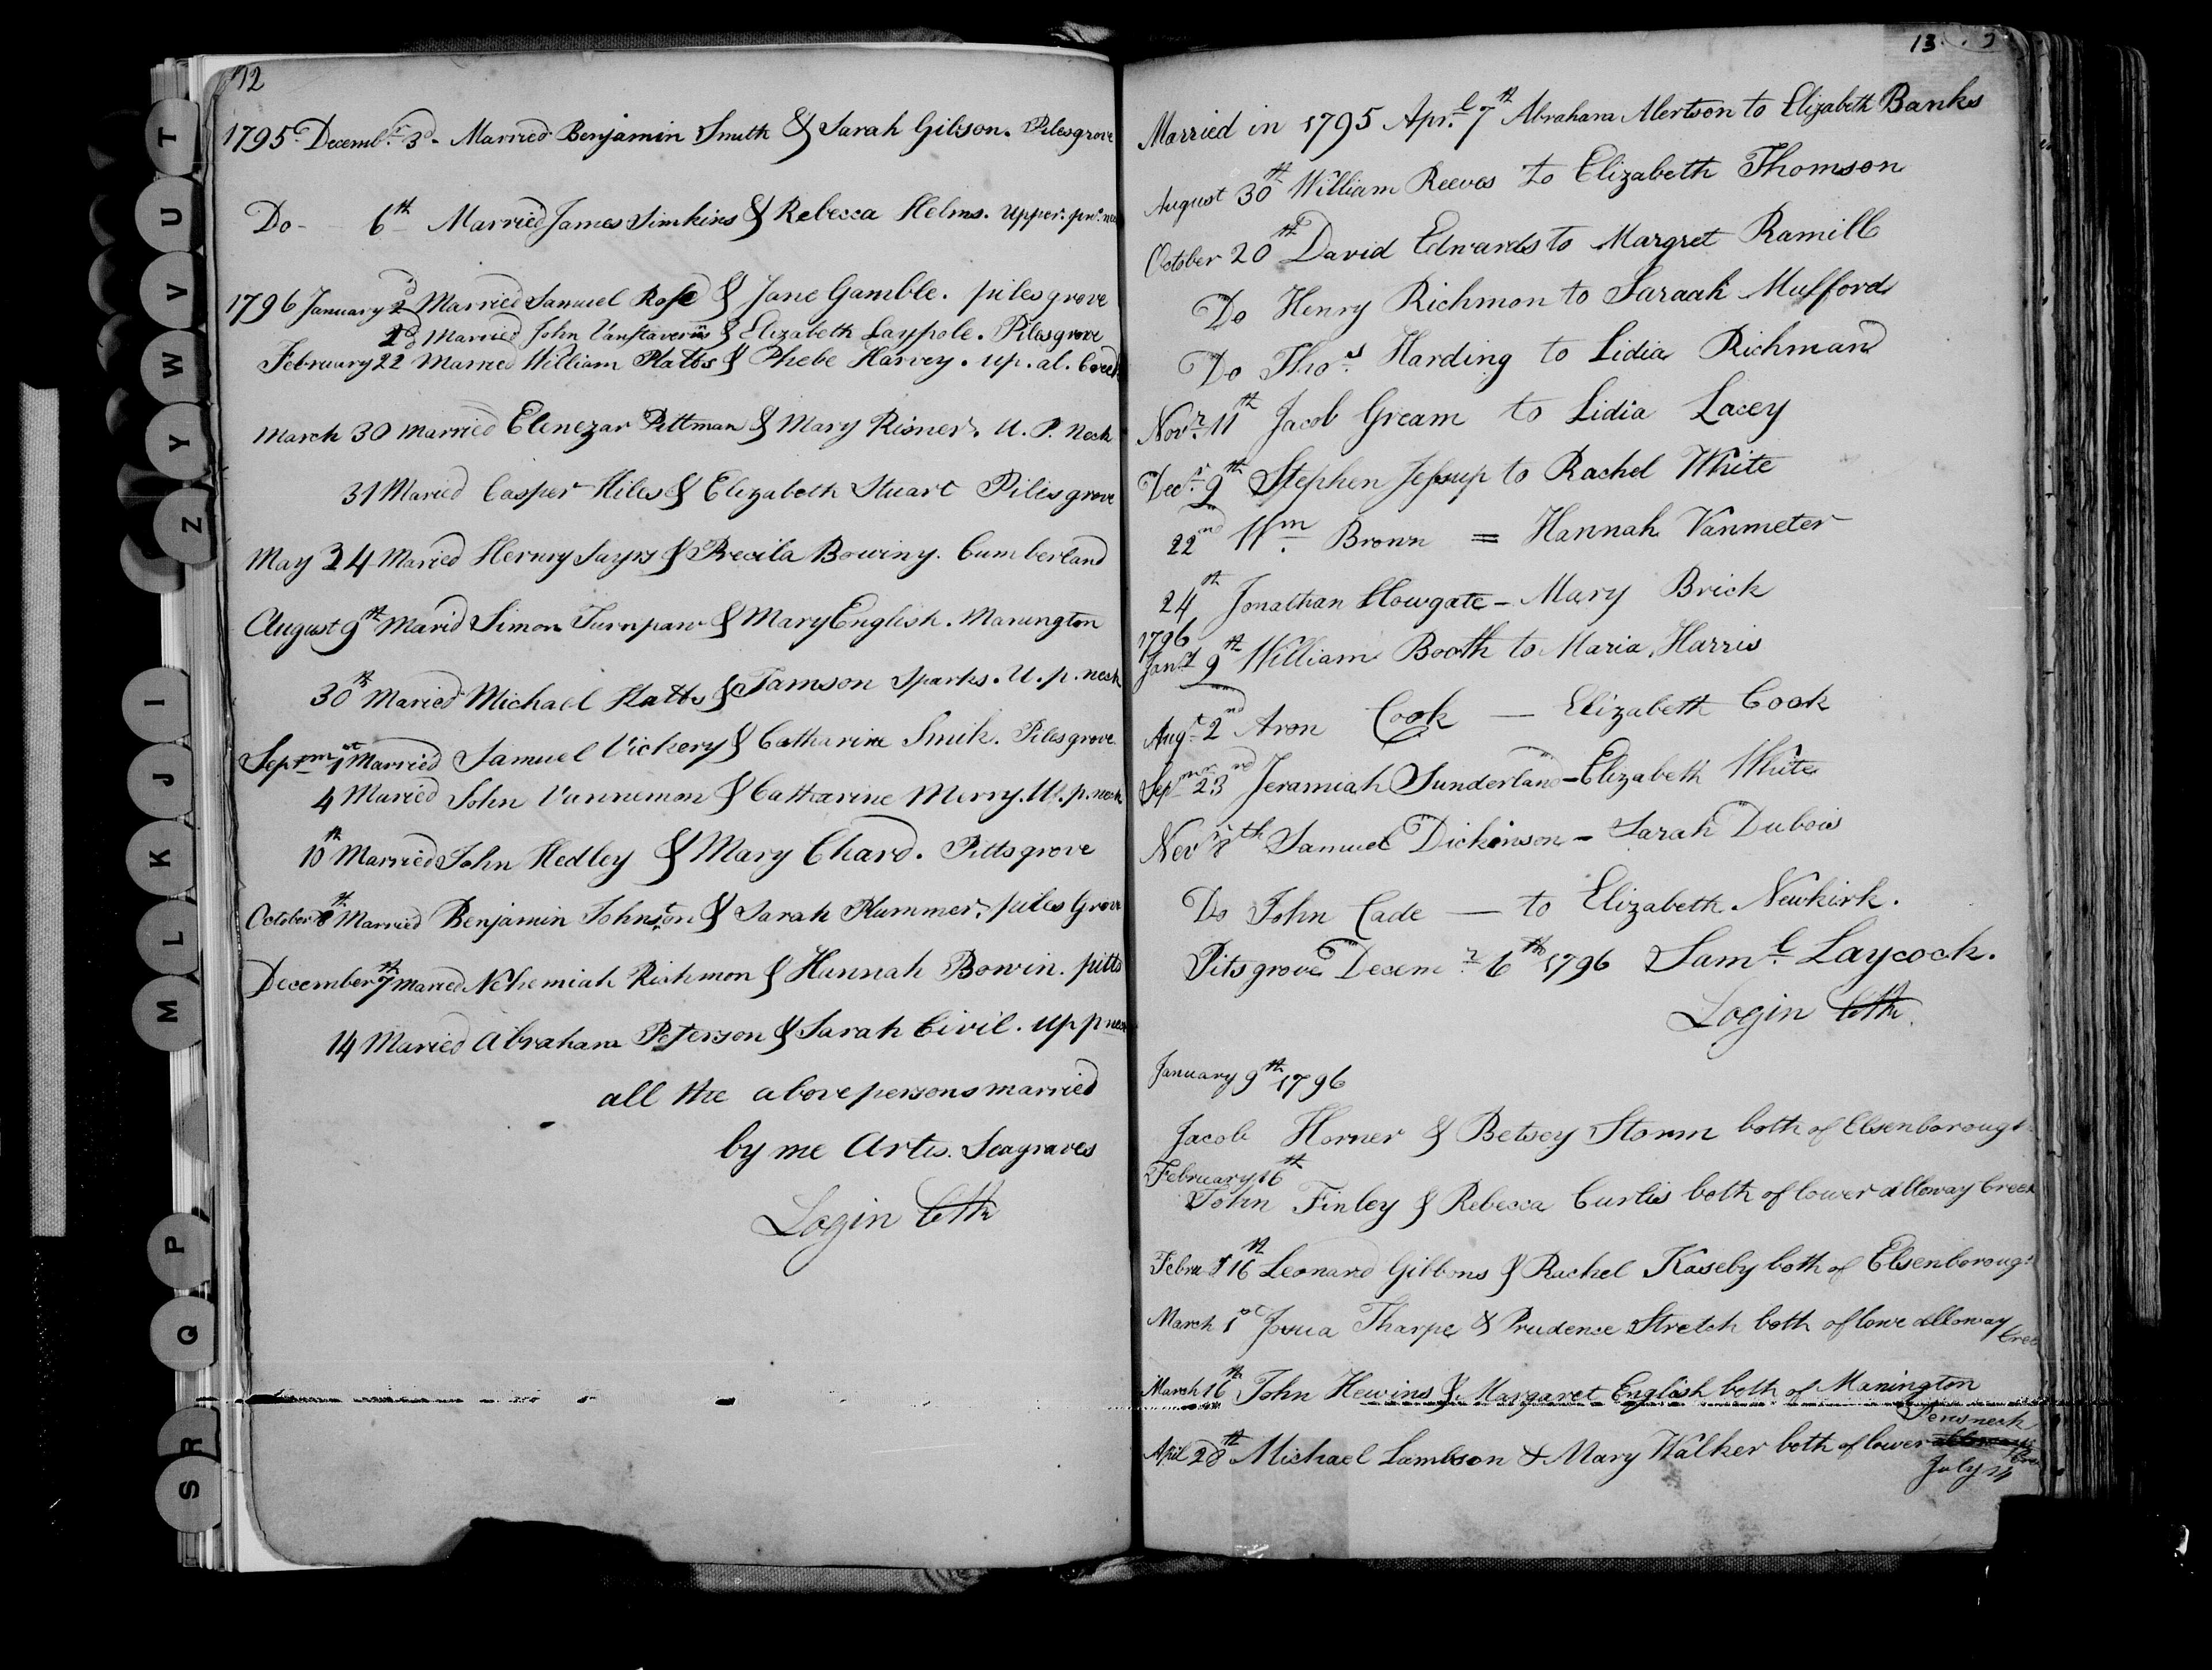 12
1795 Decembr. 3d - Married Benjamin Smith & Sarah Gibson. Pilesgrove
Do - 6th Married James Simkins & Rebecca Helms. upper. pns. neck
1796 January 2d Married Samuel Rose & Jane Gamble. pilesgrove
2d Married John & Elizabeth Laypole. Pilesgrove
February 22 Married William Platts & Phebe Harvey. up. al. Creek
March 30 married Ebenezar Pittman & Mary Risner. U. P. Neck
31 Maried Casper Hiles & Elizabeth Stuart Pilesgrove
May 24 Maried Henury Sayrs & Precila Bowiny. Cumberland
August 9th Maried Simon Turnpaw & Mary English. Manington
30th Maried Michael Platts & Tamson Sparks. U. p. neck
Sepr. 1st Married Samuel Vickery & Catharine Smik. Pilesgrove
4 Maried John Vannemon & Catharine Merry. U. p. neck
10th Married John Hedley & Mary Chard. Pittsgrove
October 8th Married Benjamin Johnson & Sarah Plummer. piles Grove
December 7th Maried Nehemiah Richmon & Hannah Bowin. pitts
14 Maried Abraham Peterson & Sarah Civil. up p neck
all the above persons married
by me Artis. Seagraves
Login Clk
T
U
V
W
Y
Z
I
J
K
L
M
P
Q
R
S
13
Married in 1795 Aprl. 7th Abraham Alertson to Elizabeth Banks
August 30th William Reeves to Elizabeth Thomson
October 20th David Edwards to Margret Ramill
Do Henry Richmon to Saraah Mufford
Do Thos. Harding to Lidia Richman
Novr. 11th Jacob Gream to Lidia Lacey
Decr. 9th Stephen Jessup to Rachel White
22nd Wm. Brown = Hannah Vanmeter
24th Jonathan Howgate - Mary Brick
1796
Jany 9th William Booth to Maria Harris
Augt. 2nd Aron Cook — Elizabeth Cook
Sepmr. 23rd Jeramiah Sunderland - Elizabeth White
Novr 8th Samuel Dickinson - Sarah Dubois
Do John Cade — to Elizabeth Newkirk.
Pitsgrove Decemr. 6th 1796 Saml. Laycock.
Login Clk.
January 9th 1796
Jacob Horner & Betsey Storm both of Elsenborough
February 16th
John Finley & Rebecca Curtis both of lower alloway Creek
Febru y 16th Leonard Gibbons & Rachel Kaseby both of Elsenboroug
March 1st Josua Tharpe & Prudence Stretch both of lowe alloway
Cree
March 16th John Hewins & Margaret English both of Manington
Penns neck
April 28th Michael Lambson & Mary Walker both of lower
July 14